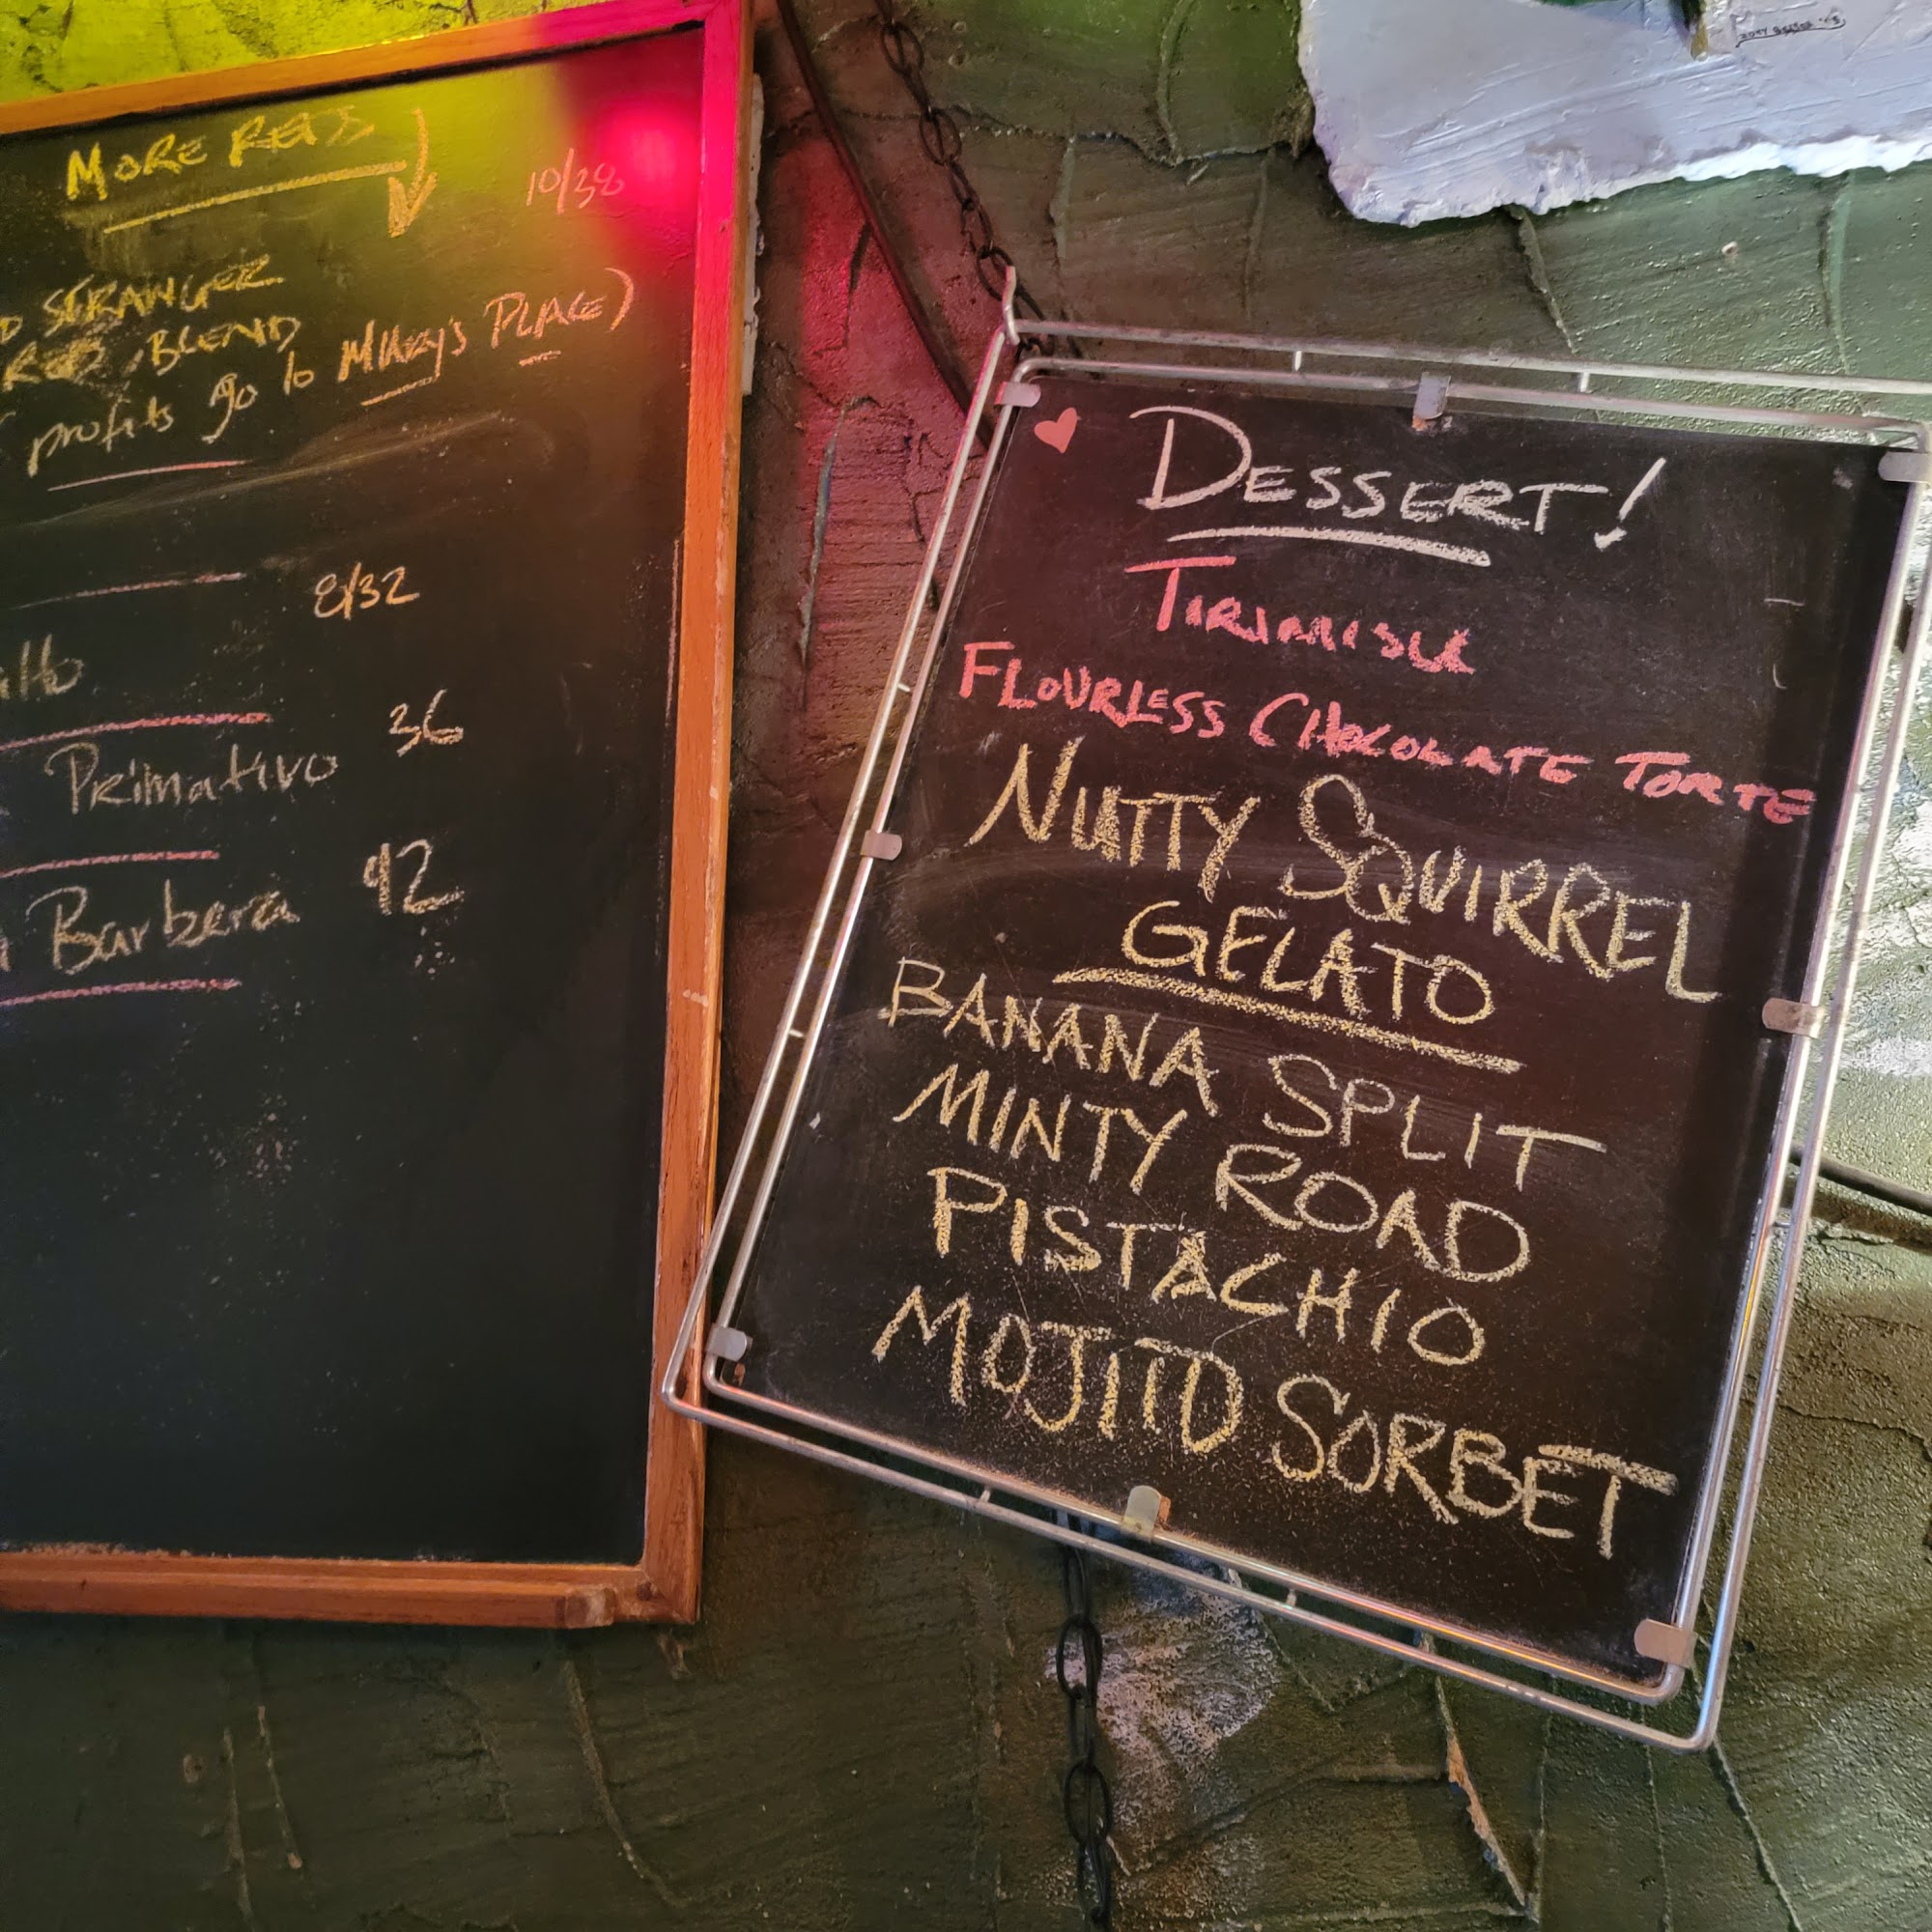 MORE REDS
10/38
STRANGER
RED BLEND
profits go to MARY'S PLACE)
8/32
Primativo 36
Barbera 42
DESSERT!
TIRIMISU
FLOURLESS CHOCOLATE TORTE
NUTTY SQUIRREL
GELATO
BANANA SPLIT
MINTY ROAD
PISTACHIO
MOJITO SORBET